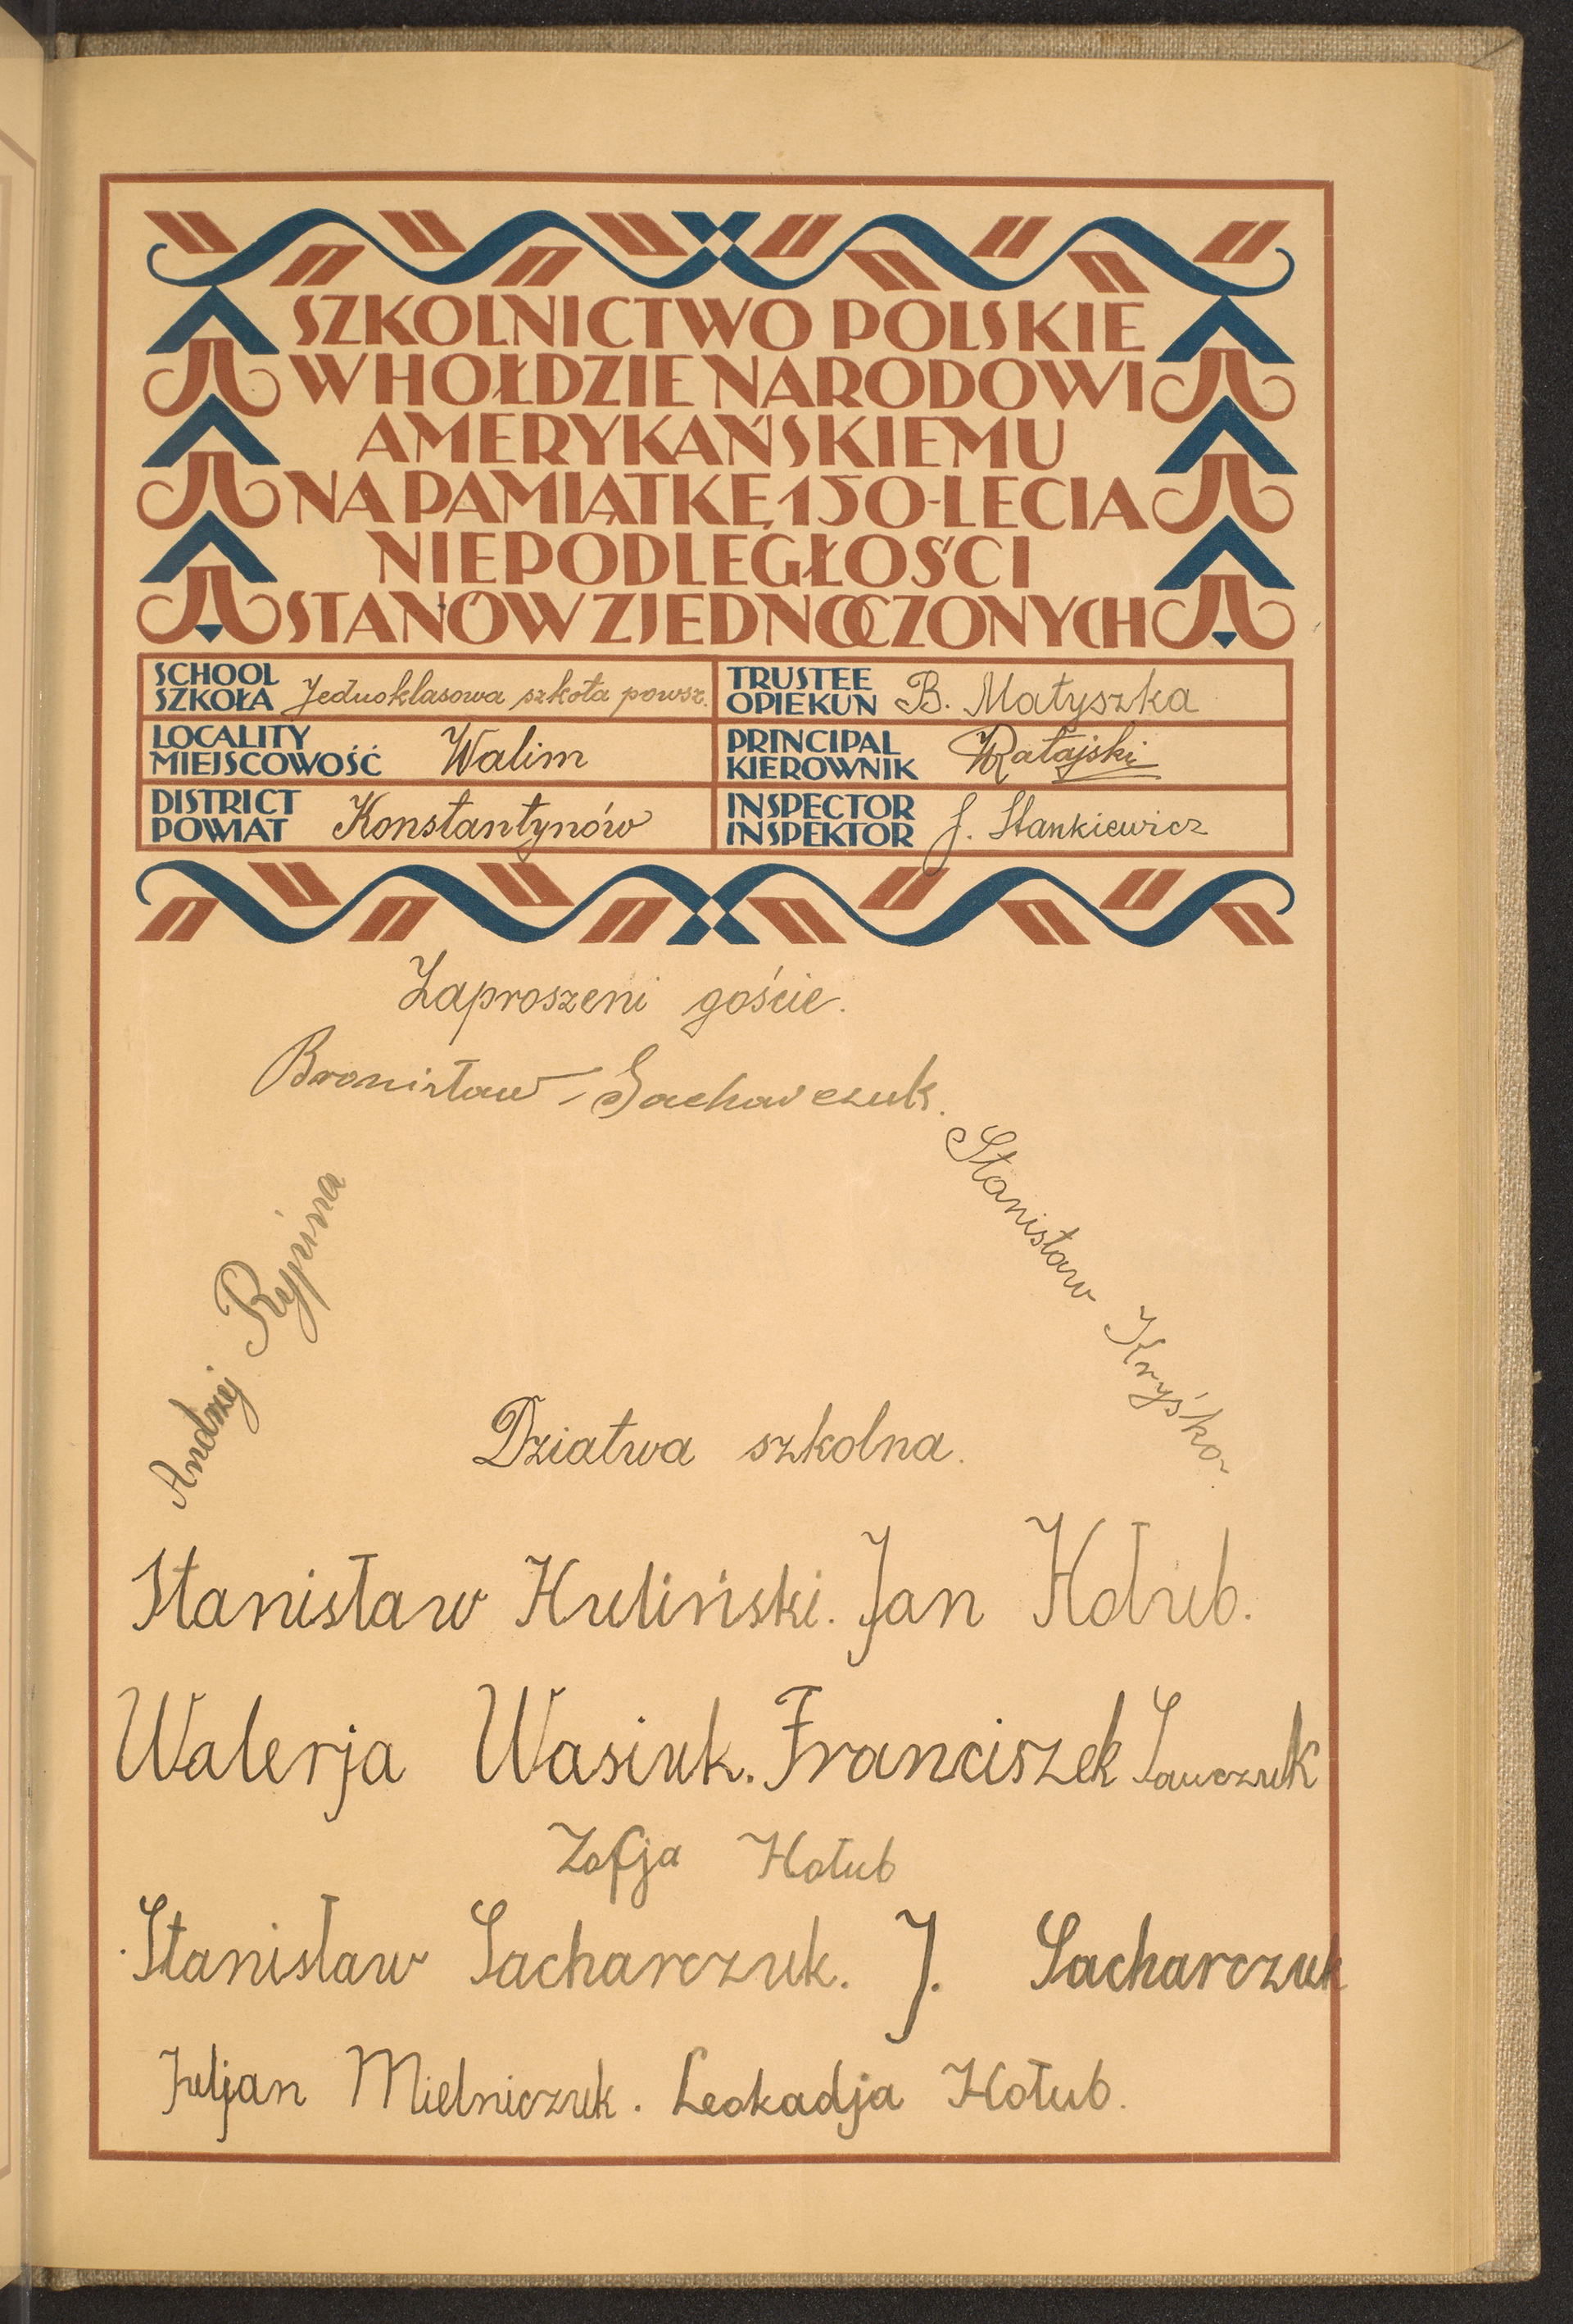 SZKOLNICTWO POLSKIE
W HOŁDZIE NARODOWI
AMERYKAŃSKIEMU
NA PAMIĄTKĘ 150-LECIA
NIEPODLEGŁOŚCI
STANÓW ZJEDNOCZONYCH
SCHOOL
SZKOŁA Jednoklasowa szkoła powsz.
TRUSTEE
OPIEKUN B. Matyszka
LOCALITY
MIEJSCOWOŚĆ Walim
PRINCIPAL
KIEROWNIK WRatajski
DISTRICT
POWIAT Konstantynów
INSPECTOR
INSPEKTOR J. Stankiewicz
Zaproszeni goście.
Bronisław - Sacharczuk.
Stanisław Kryśko.
Andrzej Rypina
Dziatwa szkolna.
Stanisław Huliński. Jan Hołub.
Walerja Wasiuk. Franciszek Sawczuk
Zofja Hołub
Stanisław Sacharczuk. J. Sacharczuk
Juljan Mielniczuk. Leokadja Hołub.